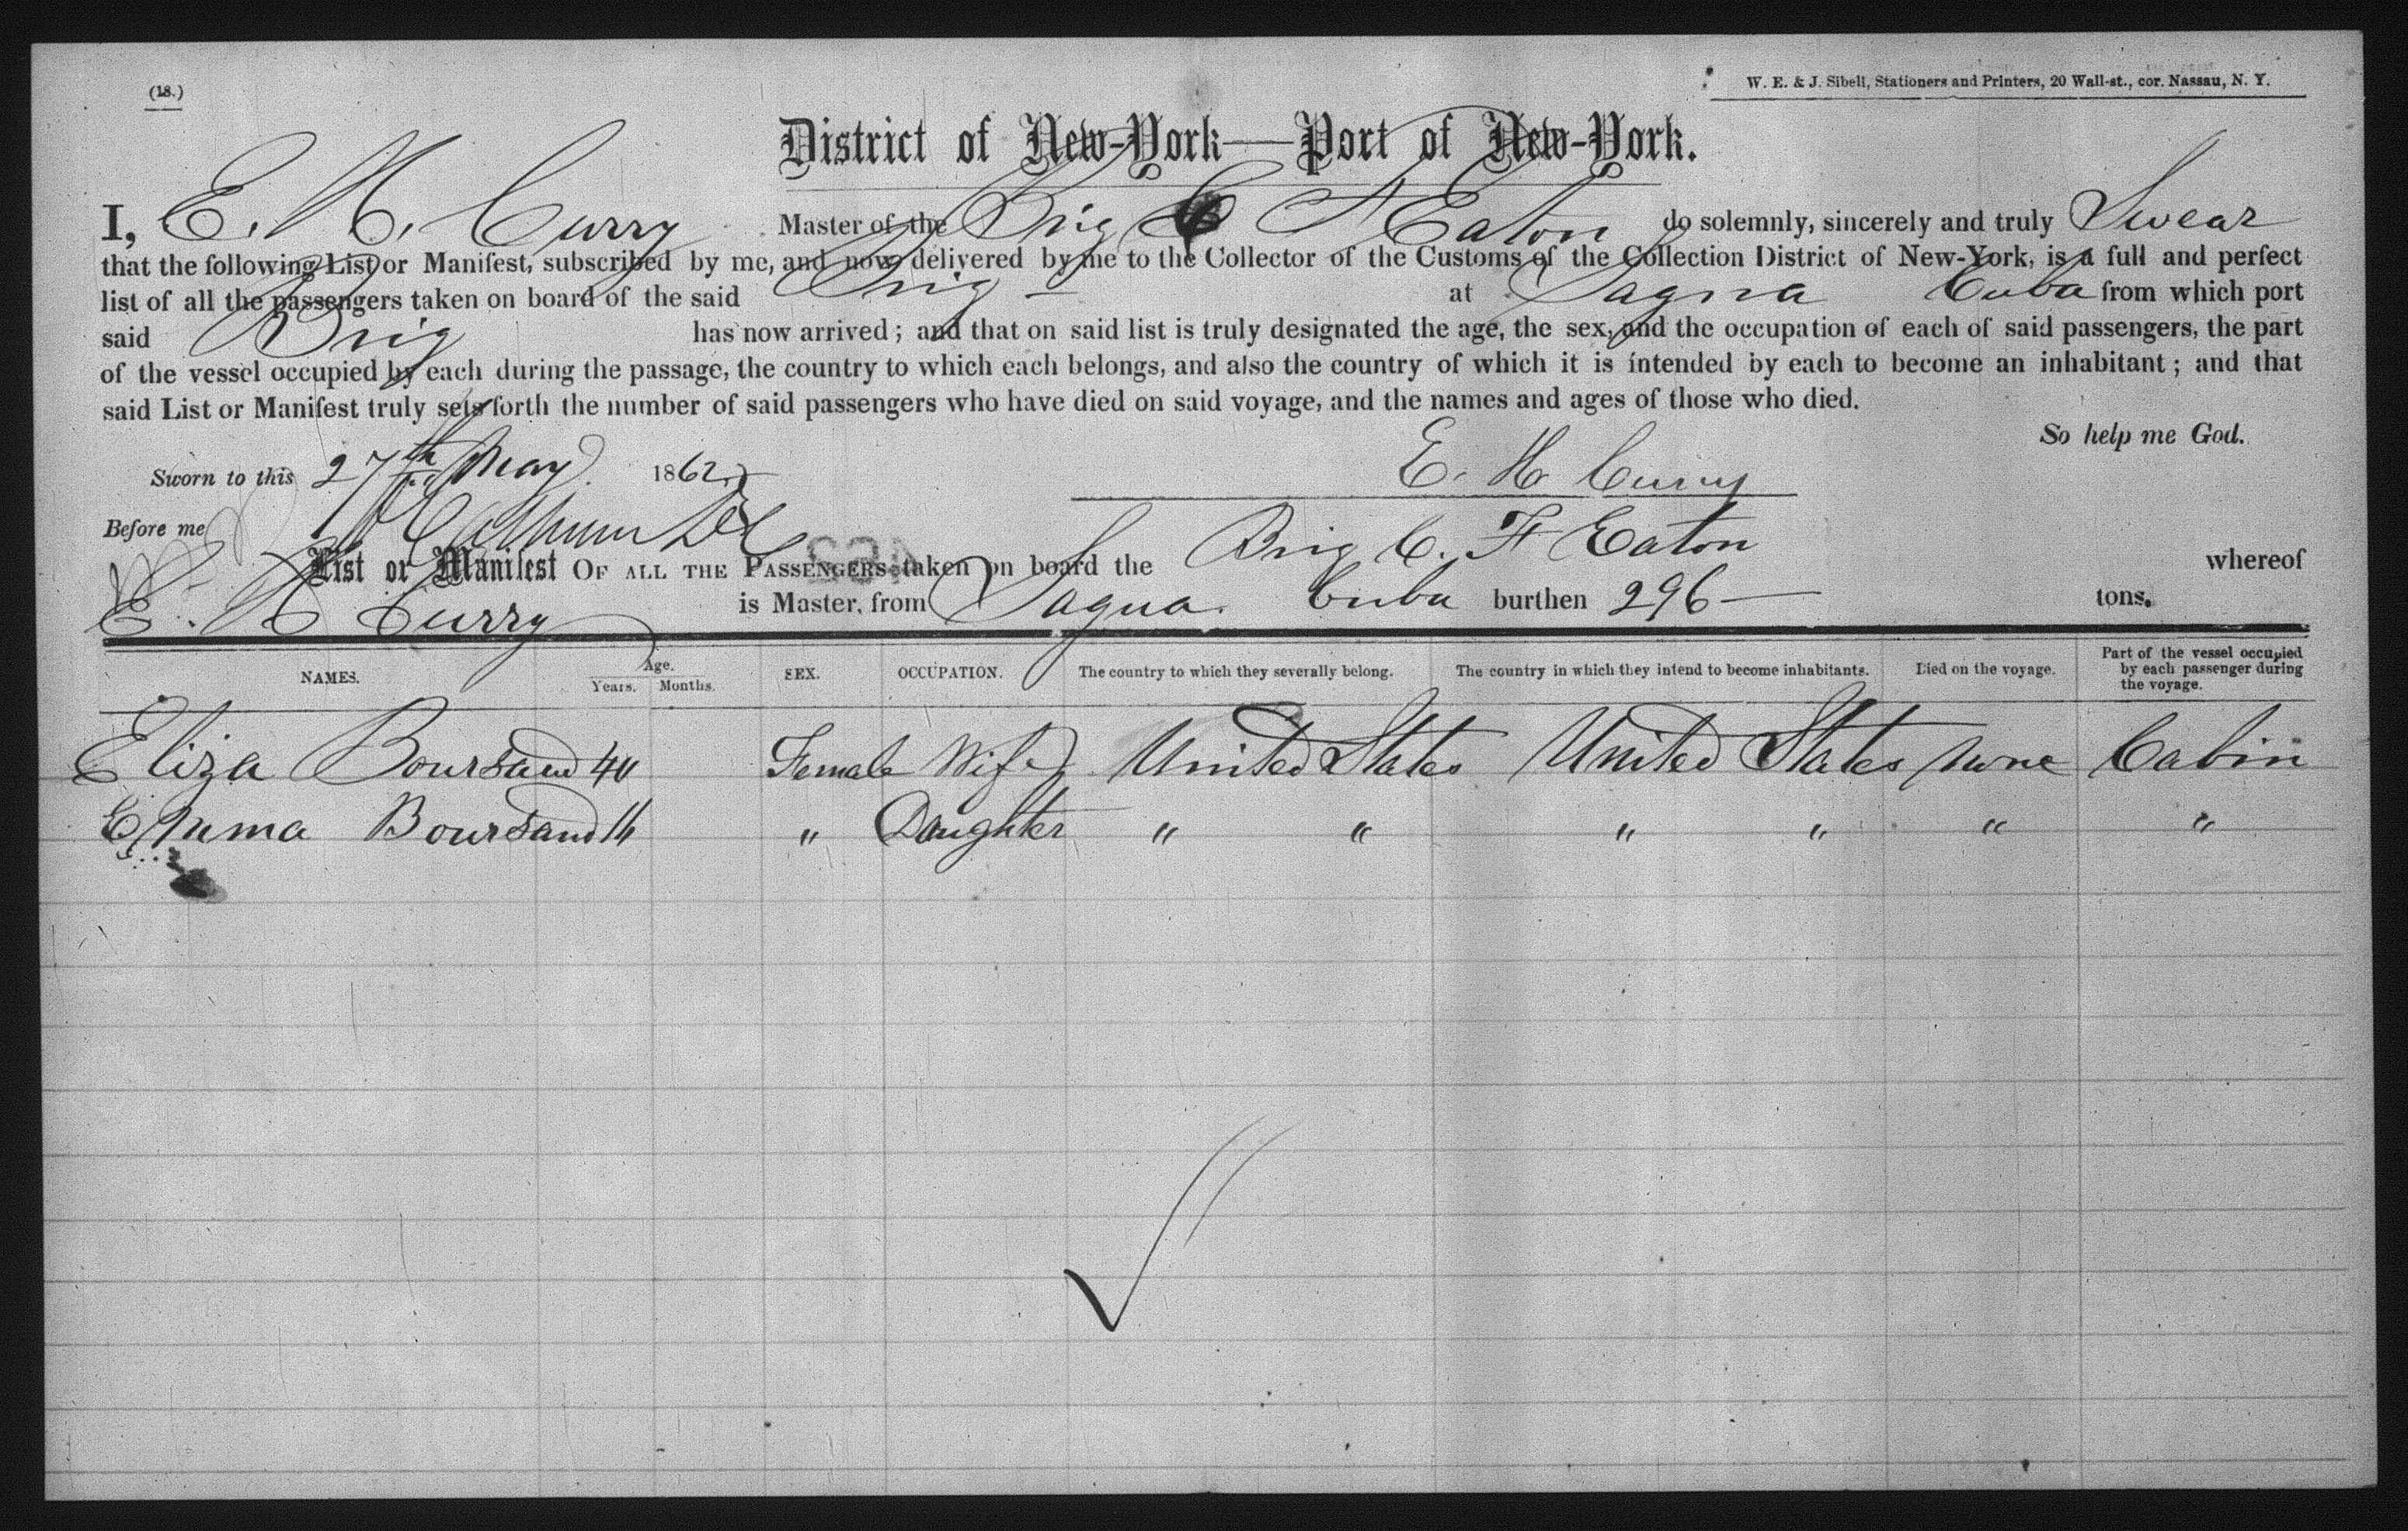 (18.)
W. E. & J. Sibell, Stationers and Printers, 20 Wall-st., cor. Nassau, N. Y.
District of New-York—Port of New-York.
I, E. H. Curry Master of the Brig C F Eaton do solemnly, sincerely and truly Swear
that the following List or Manifest, subscribed by me, and now delivered by me to the Collector of the Customs of the Collection District of New-York, is a full and perfect
list of all the passengers taken on board of the said Brig at Sagua Cuba from which port
said Brig has now arrived; and that on said list is truly designated the age, the sex, and the occupation of each of said passengers, the part
of the vessel occupied by each during the passage, the country to which each belongs, and also the country of which it is intended by each to become an inhabitant; and that
said List or Manifest truly sets forth the number of said passengers who have died on said voyage, and the names and ages of those who died.
So help me God.
Sworn to this 27th May 1862 E. H. Curry
Before me
List or Manifest OF ALL THE PASSENGERS taken on board the Brig C. F Eaton whereof
E. H Curry is Master, from Sagua. Cuba burthen 296 tons.
NAMES. Age. Years. Months. SEX. OCCUPATION. The country to which they severally belong. The country in which they intend to become inhabitants. Died on the voyage. Part of the vessel occupied by each passenger during the voyage.
Eliza Boursaud 40 Female Wife United States United States None Cabin
Emma Boursaud 16 " Daughter " " " " " "